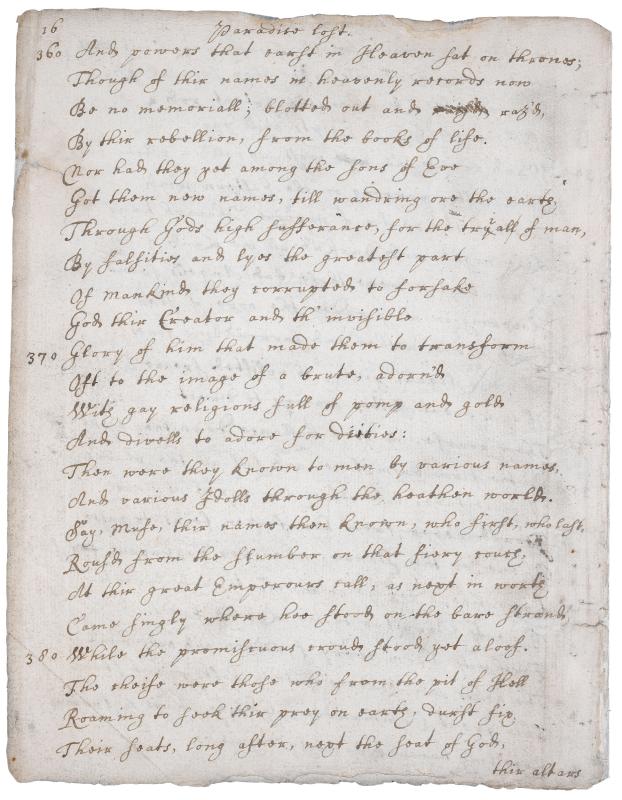 16 Paradise lost.
360 And powers that earst in Heaven sat on thrones;
Though of thir names in heavenly records now
Be no memoriall; blotted out and raz'd,
By thir rebellion, from the books of life.
Nor had they yet among the sons of Eve
Got them new names, till wandring ore the earth,
Through Gods high sufferance, for the tryall of man,
By falsities and lyes the greatest part
Of mankind they corrupted to forsake
God thir Creator and th' invisible
370 Glory of him that made them to transform
Oft to the image of a brute, adorn'd
With gay religions full of pomp and gold
And divells to adore for dieties:
Then were they known to men by various names,
And various Idolls through the heathen world.
Say, Muse, thir names then known, who first, who last,
Rous'd from the slumber on that fiery couch,
At thir great Emperours call, as next in worth
Came singly where hee stood on the bare strand
380 While the promiscuous croud stood yet aloof.
The cheife were those who from the pit of Hell
Roaming to seek thir prey on earth, durst fix
Their seats, long after, next the seat of God,
thir altars